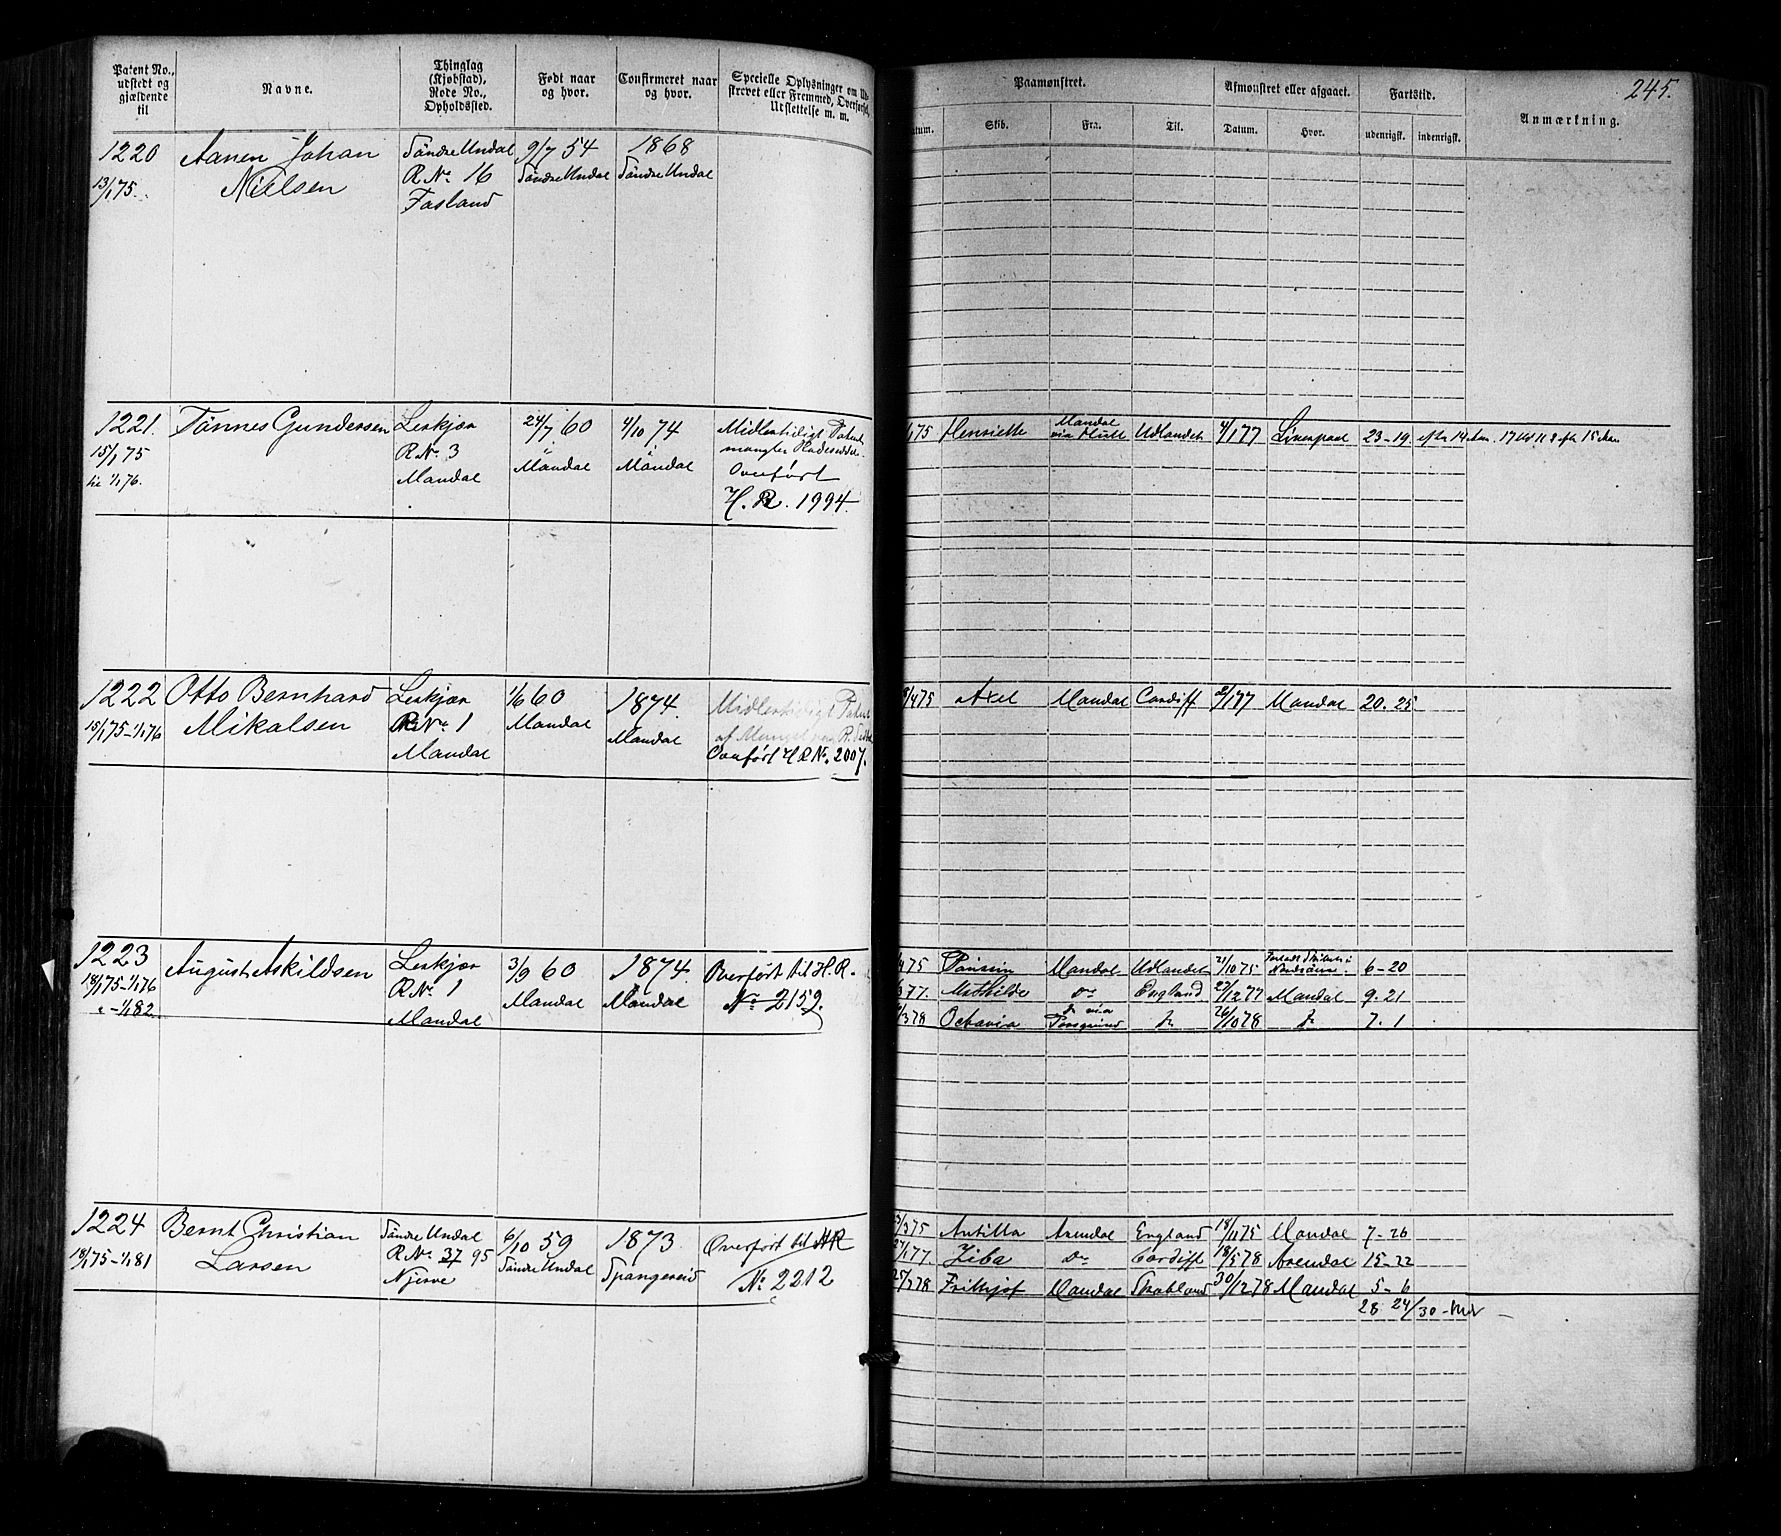 Patent No., udstedt og gjældende til
Navne.
Thinglag (Kjøbstad), Rode No., Opholdssted.
Født naar og hvor.
Confirmeret naar og hvor.
Specielle Oplysninger om Udskrevet eller Fremmed, Overførsel, Udslettelse m. m.
Paamønstret.
Skib.
Fra.
Til.
Afmønstret eller afgaaet.
Datum.
Hvor.
Fartstid.
udenrigsk.
indenrigsk.
Anmærkning.
245.
1220 Aanen Johan Söndre Undal 9/7 54 1868
13/1 75. Nielsen R No 16 Söndre Undal Söndre Undal
Fasland
1221. Tönnes Gundersen Leskjær 24/7 60 4/10 74 Midlertidigt Patent
15/1 75 R No 3 Mandal Mandal mangler Rodeseddel.
til 1/1 76. Mandal Overført
H. R. 1994.
75 Henriette Mandal via Hull Udlandet 4/1 77 Liverpool 23-19
1222 Otto Bernhard Leskjær 1/6 60 1874. Midlertidigt Patent
15/1 75-1/1 76 Mikalsen R No 1 Mandal Mandal af Mangel paa R. Seddel
Mandal Overført H R No. 2007.
/4 75 Axel Mandal Cardiff 2/1 77 Mandal 20.25
1223 August Askildsen Leskjær 3/9 60 1874. Overført til H. R.
18/1 75-1/1 76 R No 1 Mandal Mandal No 2152.
" -1/1 82 Mandal
75 Mandal Udlandet 21/10 75 6-20
77. Mathilde Do England 27/12 77 Mandal 9.21
/3 78 Octavia Do via Porsgrund Do 26/10 78 Do 7.1
1224 Bernt Christian Söndre Undal 6/10 59 1873 Overført til HR
18/1 75-1/1 81 Larsen R No 37 95 Söndre Undal Spangereid No 2212
Njerve
/3 75 Antilla Arendal England 18/11 75 Mandal 7-26
/1 77. Ziba Do Cardiff 18/5 78 Arendal 15-22
25/5 78 Frithjof Mandal 30/12 78 Mandal 5-6
28 24/30 Mdr